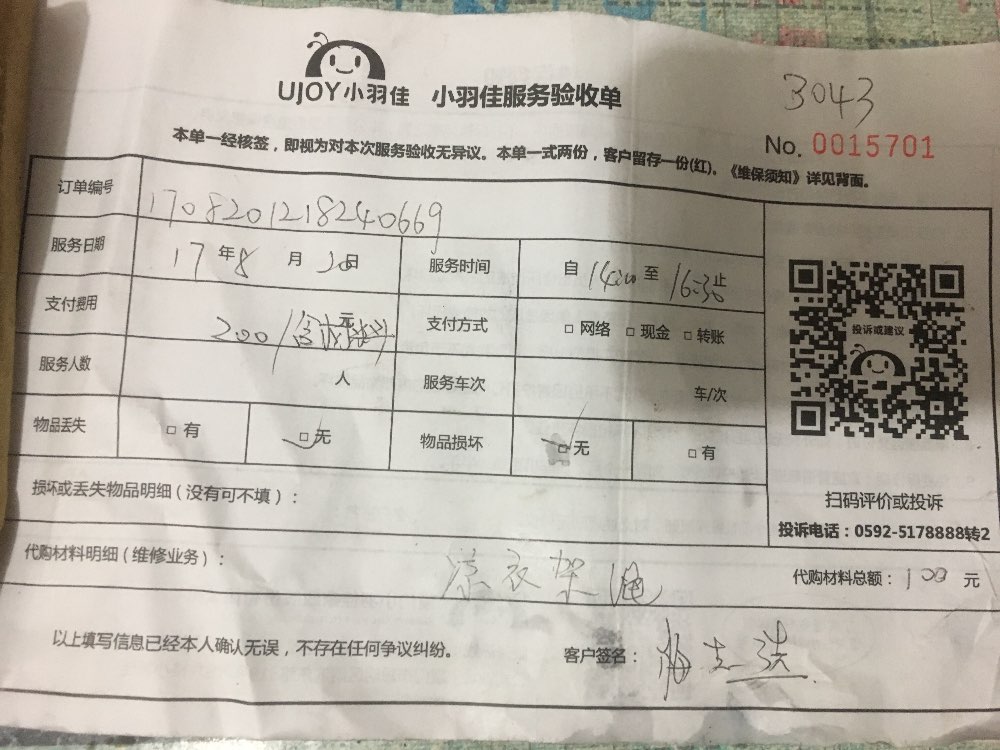 UJOY小羽佳 小羽佳服务验收单
3043
No. 0015701
本单一经核签，即视为对本次服务验收无异议。本单一式两份，客户留存一份(红)。《维保须知》详见背面。
订单编号 1708201218240669
服务日期 17年8月20日 服务时间 自14:00至16:30止
支付费用 200/ 元 支付方式 □网络 □现金 □转账
服务人数 人 服务车次 车/次
物品丢失 □有 □无 物品损坏 □无 □有
投诉或建议
扫码评价或投诉
投诉电话：0592-5178888转2
损坏或丢失物品明细（没有可不填）：
代购材料明细（维修业务）： 凉衣架 绳 代购材料总额：100 元
以上填写信息已经本人确认无误，不存在任何争议纠纷。 客户签名：